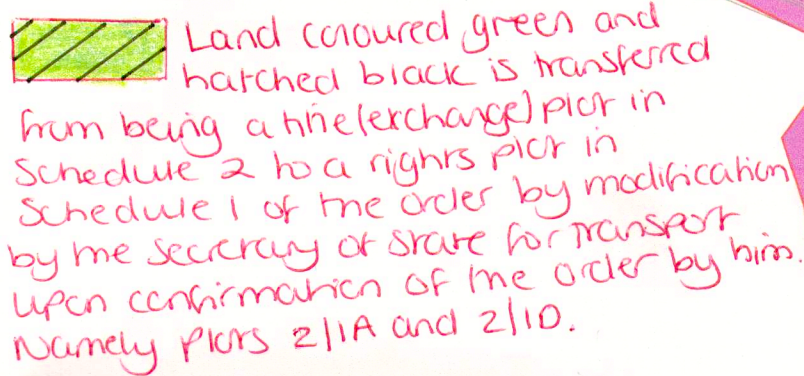 Land coloured green and
hatched black is transferred
from being a title (exchange) plot in
Schedule 2 to a rights plot in
Schedule 1 of the order by modification
by the Secretary of State for Transport
upon confirmation of the order by him.
Namely plots 2/1A and 2/1D.